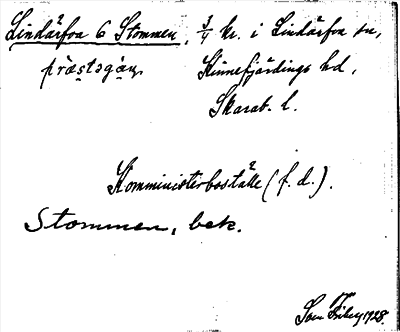 Lindärfva 6 Stommen, 3/4 kr. i Lindärfva sn,
präs̩tɘgàn, Kinnefjärdings hd,
Skarab. l.
Komministerboställe (f. d.).
Stommen, bek.
1928.